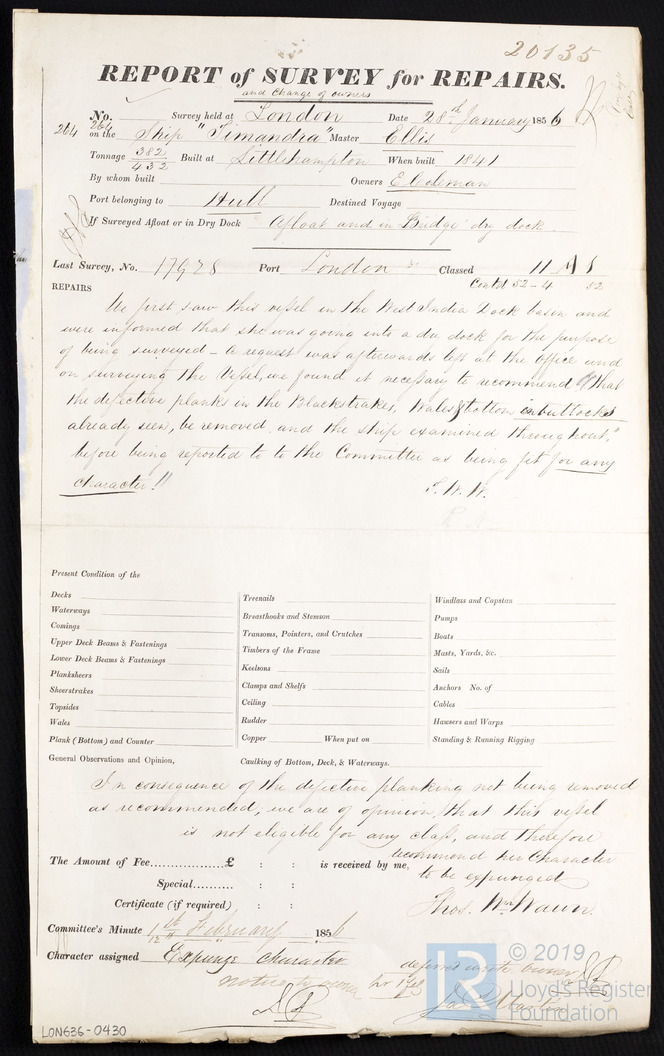 20135
REPORT of SURVEY for REPAIRS.
and Change of owners
No. 264 Survey held at London Date 28th January 1856
264 on the Ship "Timandra" Master Ellis
Tonnage 382 / 432 Built at Littlehampton When built 1841
By whom built Owners E Coleman
Port belonging to Hull Destined Voyage
If Surveyed Afloat or in Dry Dock Afloat and in Bridge dry dock
Last Survey, No. 17978 Port London Classed 11 A 1
Contd 52-4 52
REPAIRS
We first saw this vessel in the West India Dock basin and
were informed that she was going into a dry dock for the purpose
of being surveyed - a request was afterwards left at the office and
on surveying the Vessel, we found it necessary to recommend "that
the defective planks in the Blackstrakes, Wales & bottom in buttocks
already seen, be removed, and the ship examined throughout,"
before being reported to to the Committee as being fit for any
character!!
T. W. W.
Present Condition of the
Decks
Waterways
Comings
Upper Deck Beams & Fastenings
Lower Deck Beams & Fastenings
Planksheers
Sheerstrakes
Topsides
Wales
Plank (Bottom) and Counter
Treenails
Breasthooks and Stemson
Transoms, Pointers, and Crutches
Timbers of the Frame
Keelsons
Clamps and Shelfs
Ceiling
Rudder
Copper When put on
Windlass and Capstan
Pumps
Boats
Masts, Yards, &c.
Sails
Anchors No. of
Cables
Hawsers and Warps
Standing & Running Rigging
General Observations and Opinion, Caulking of Bottom, Deck, & Waterways.
In consequence of the defective planking not being removed
as recommended; we are of opinion, that this vessel
is not eligible for any class, and therefore
recommend her Character
to be expunged
The Amount of Fee...............£ : : is received by me,
Special.......... : :
Certificate (if required) : :
Thos. Wm Wawn.
Committee's Minute 1st February 1856
12th "
Character assigned Expunge Character
notice to owner
deferred write owner
LON636-0430
LR
© 2019
Lloyd's Register
Foundation